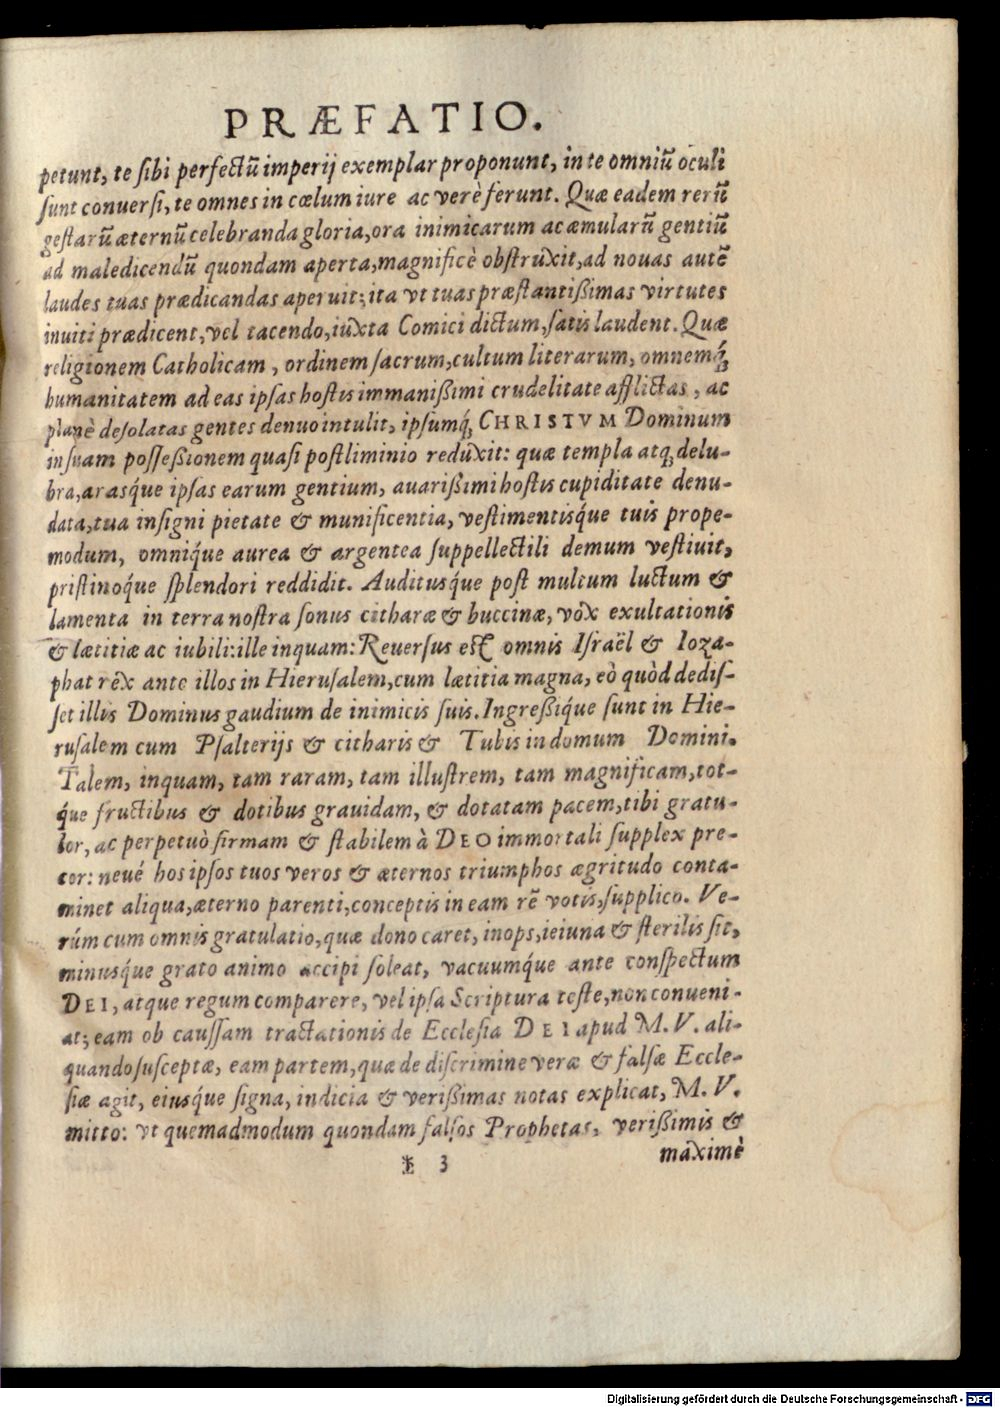 PRÆFATIO.
petunt, te sibi perfectũ imperij exemplar proponunt, in te omniũ oculi
sunt conuersi, te omnes in cœlum iure ac verè ferunt. Quæ eadem rerũ
gestarũ æternũ celebranda gloria, ora inimicarum ac æmularũ gentiũ
ad maledicendũ quondam aperta, magnificè obstruxit, ad nouas autẽ
laudes tuas prædicandas aperuit; ita vt tuas præstantißimas virtutes
inuiti prædicent, vel tacendo, iuxta Comici dictum, satis laudent. Quæ
religionem Catholicam, ordinem sacrum, cultum literarum, omnemq́;
humanitatem ad eas ipsas hostis immanißimi crudelitate afflictas, ac
planè desolatas gentes denuo intulit, ipsumq́; CHRISTVM Dominum
in suam possessionem quasi postliminio reduxit: quæ templa atq; delu-
bra, arasq́ue ipsas earum gentium, auarißimi hostis cupiditate denu-
data, tua insigni pietate & munificentia, vestimentisq́ue tuis prope-
modum, omniq́ue aurea & argentea suppellectili demum vestiuit,
pristinoq́ue splendori reddidit. Auditusq́ue post multum luctum &
lamenta in terra nostra sonus citharæ & buccinæ, vox exultationis
& lætitiæ ac iubili: ille inquam: Reuersus est omnis Israël & Ioza-
phat rex ante illos in Hierusalem, cum lætitia magna, eò quòd dedis-
set illis Dominus gaudium de inimicis suis. Ingreßiq́ue sunt in Hie-
rusalem cum Psalterijs & citharis & Tubis in domum Domini.
Talem, inquam, tam raram, tam illustrem, tam magnificam, tot-
q́ue fructibus & dotibus grauidam, & dotatam pacem, tibi gratu-
lor, ac perpetuò firmam & stabilem à DEO immortali supplex pre-
cor: neué hos ipsos tuos veros & æternos triumphos ægritudo conta-
minet aliqua, æterno parenti, conceptis in eam rẽ votis, supplico. Ve-
rúm cum omnis gratulatio, quæ dono caret, inops, ieiuna & sterilis sit,
minusq́ue grato animo accipi soleat, vacuumq́ue ante conspectum
DEI, atque regum comparere, vel ipsa Scriptura teste, non conueni-
at; eam ob caussam tractationis de Ecclesia DEI apud M. V. ali-
quando susceptæ, eam partem, quæ de discrimine veræ & falsæ Eccle-
siæ agit, eiusq́ue signa, indicia & verißimas notas explicat, M. V.
mitto: vt quemadmodum quondam falsos Prophetas, verißimis &
* 3
maximè
Digitalisierung gefördert durch die Deutsche Forschungsgemeinschaft - DFG